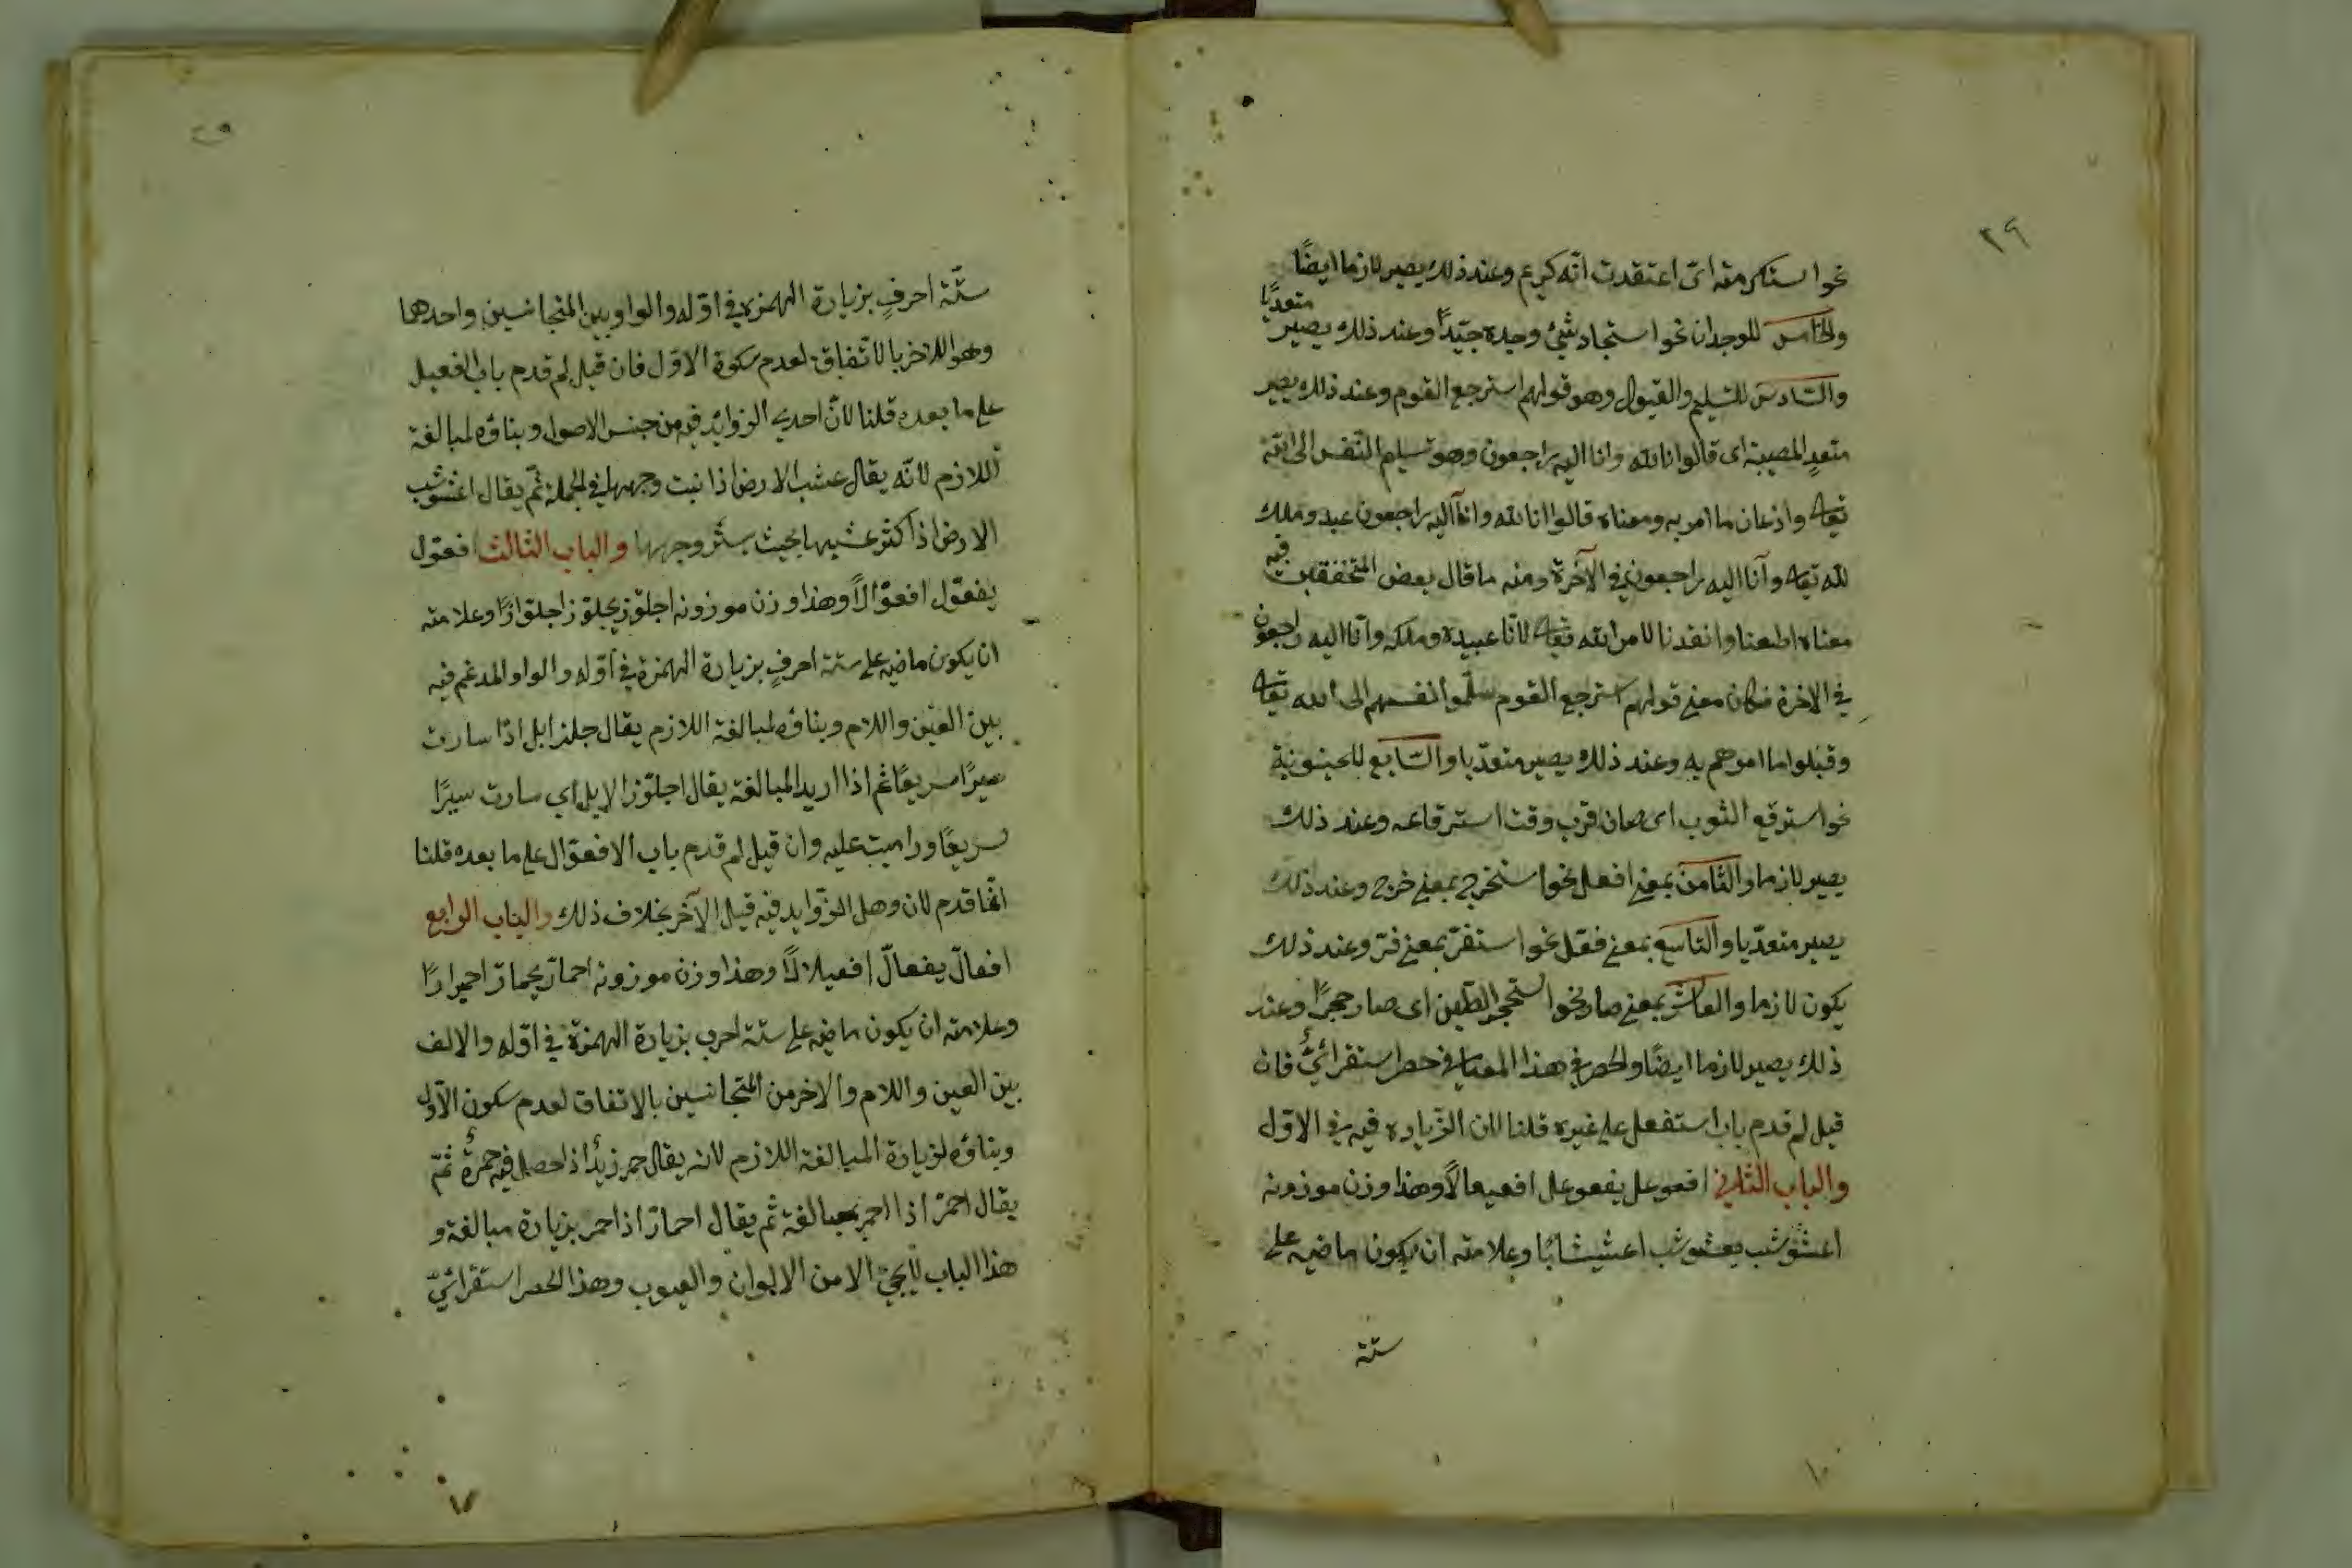 ٢٩
نحو استكرمته اى اعتقدت انّه كريم وعند ذلك يصير لازما ايضًا
والخامس للوجدان نحو استجاد شئ وجده جيّدًا وعند ذلك يصير متعديًا
والسّادس للتسليم والقبول وهو قولهم استرجع القوم وعند ذلك يصير
متعدٍ المصيبة اى قالوا انا لله وانا اليه راجعون وهو تسليم النّفس الى الله
تعالى واذعان ما امر به ومعناه قالوا انا لله وانّا اليه راجعون عبد وملك
لله تعالى وانّا اليه راجعون فى الآخرة ومنه ما قال بعض المتحققين فيه
معناه اطعنا وانقدنا لامر الله تعالى لانّا عبيده وملكه وانّا اليه راجعون
فى الاخرة فكان معنى قولهم استرجع القوم سلّموا انفسهم الى الله تعالى
وقبلوا ما امرهم به وعند ذلك يصير متعدّيا والسّابع للحينونة
نحو استرقع الثوب اى حان قرب وقت استرقاعه وعند ذلك
يصير لازما والثّامن بمعنى افعل نحو استخرج بمعنى خرج وعند ذلك
يصير متعدّيا والتاسع بمعنى فعل نحو استقرّ بمعنى قرّ وعند ذلك
يكون لازما والعاشر بمعنى صار نحو استحجر الطّين اى صار حجرًا وعند
ذلك يصير لازما ايضًا والحصر فى هذا المعانى حصر استقرائىٌّ فان
قيل لم قدم باب استفعل على غيره قلنا لان الزّيادة فيه فى الاوّل
والباب الثّانى افعوعل يفعوعل افعيعالاً وهذا وزن موزونه
اعشوشب يعشوشب اعشيشابًا وعلامته ان يكون ماضيه على
ستة
ستّة احرفٍ بزيادة الهمزة فى اوّله والواو بين المتجانسين واحدهما
وهو اللاخر بالاتّفاق لعدم سكوة الاوّل فان قيل لم قدم باب افعيل
على ما بعده قلنا لانّ احدى الزوائد فيه من جنس الاصول وبناؤه لمبالغة
اللازم لانّه يقال عشب الارض اذا نبت وجهها فى الجملة ثمّ يقال اعشوشب
الارض اذا كثر عشبها بحيث يستر وجهها والباب الثالث افعوّل
يفعوّل افعوّالاً وهذا وزن موزونه اجلوّز يجلوّز اجلوّازًا وعلامته
ان يكون ماضيه على ستة احرفٍ بزيادة الهمزة فى اوّله والواو المدغم فيه
بين العين واللام وبناؤه لمبالغة اللازم يقال جلز ابل اذا سارت
سيرًا سريعًا ثم اذا اريد المبالغة يقال اجلوّز الابل اي سارت سيرًا
سريعًا وراميت عليه وان قيل لم قدم باب الافعوّال على ما بعده قلنا
انّما قدم لان وهل الزّوايد فيه قبل الآخر بخلاف ذلك والباب الرابع
افعالّ يفعالّ افعيلالاً وهذا وزن موزونه احمارّ يحمارّ احميرارًا
وعلامته ان يكون ماضيه على ستة احرف بزيادة الهمزة فى اوّله والالف
بين العين واللام والاخر من المتجانسين بالاتفاق لعدم سكون الاوّل
وبناؤه لزيادة المبالغة اللازم لانه يقال حمر زيدٌ اذا حصل فيه حمرةٌ ثمّ
يقال احمرّ اذا احمر بمبالغة ثم يقال احمارّ اذا حمر بزيادة مبالغة و
هذا الباب لا يجئ الا من الالوان والعيوب وهذا الحصر استقرائىٌّ